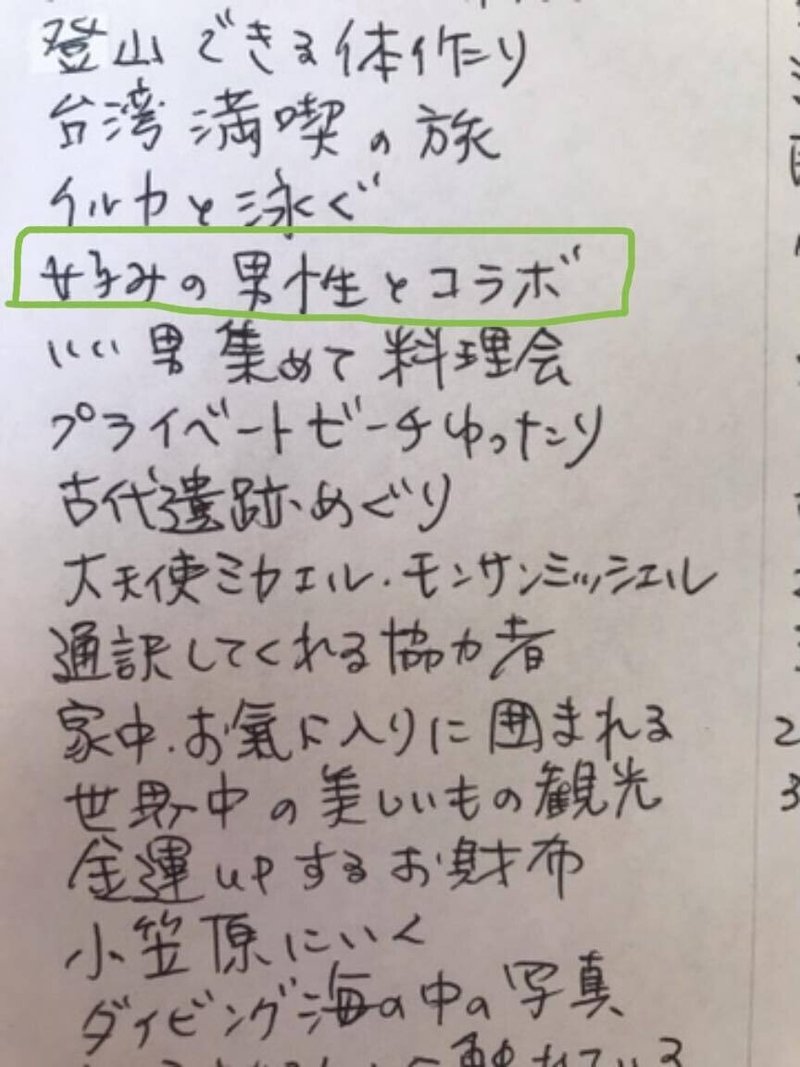 登山できる体作たり
台湾満喫の旅
イルカと泳ぐ
好みの男性とコラボ
いい男集めて料理会
プライベートビーチゆったり
古代遺跡めぐり
大天使ミカエル・モンサンミッシェル
通訳してくれる協力者
家中.お氣に入りに囲まれる
世界中の美しいもの観光
金運upするお財布
小笠原にいく
ダイビング海の中の写真
触れている
2
3